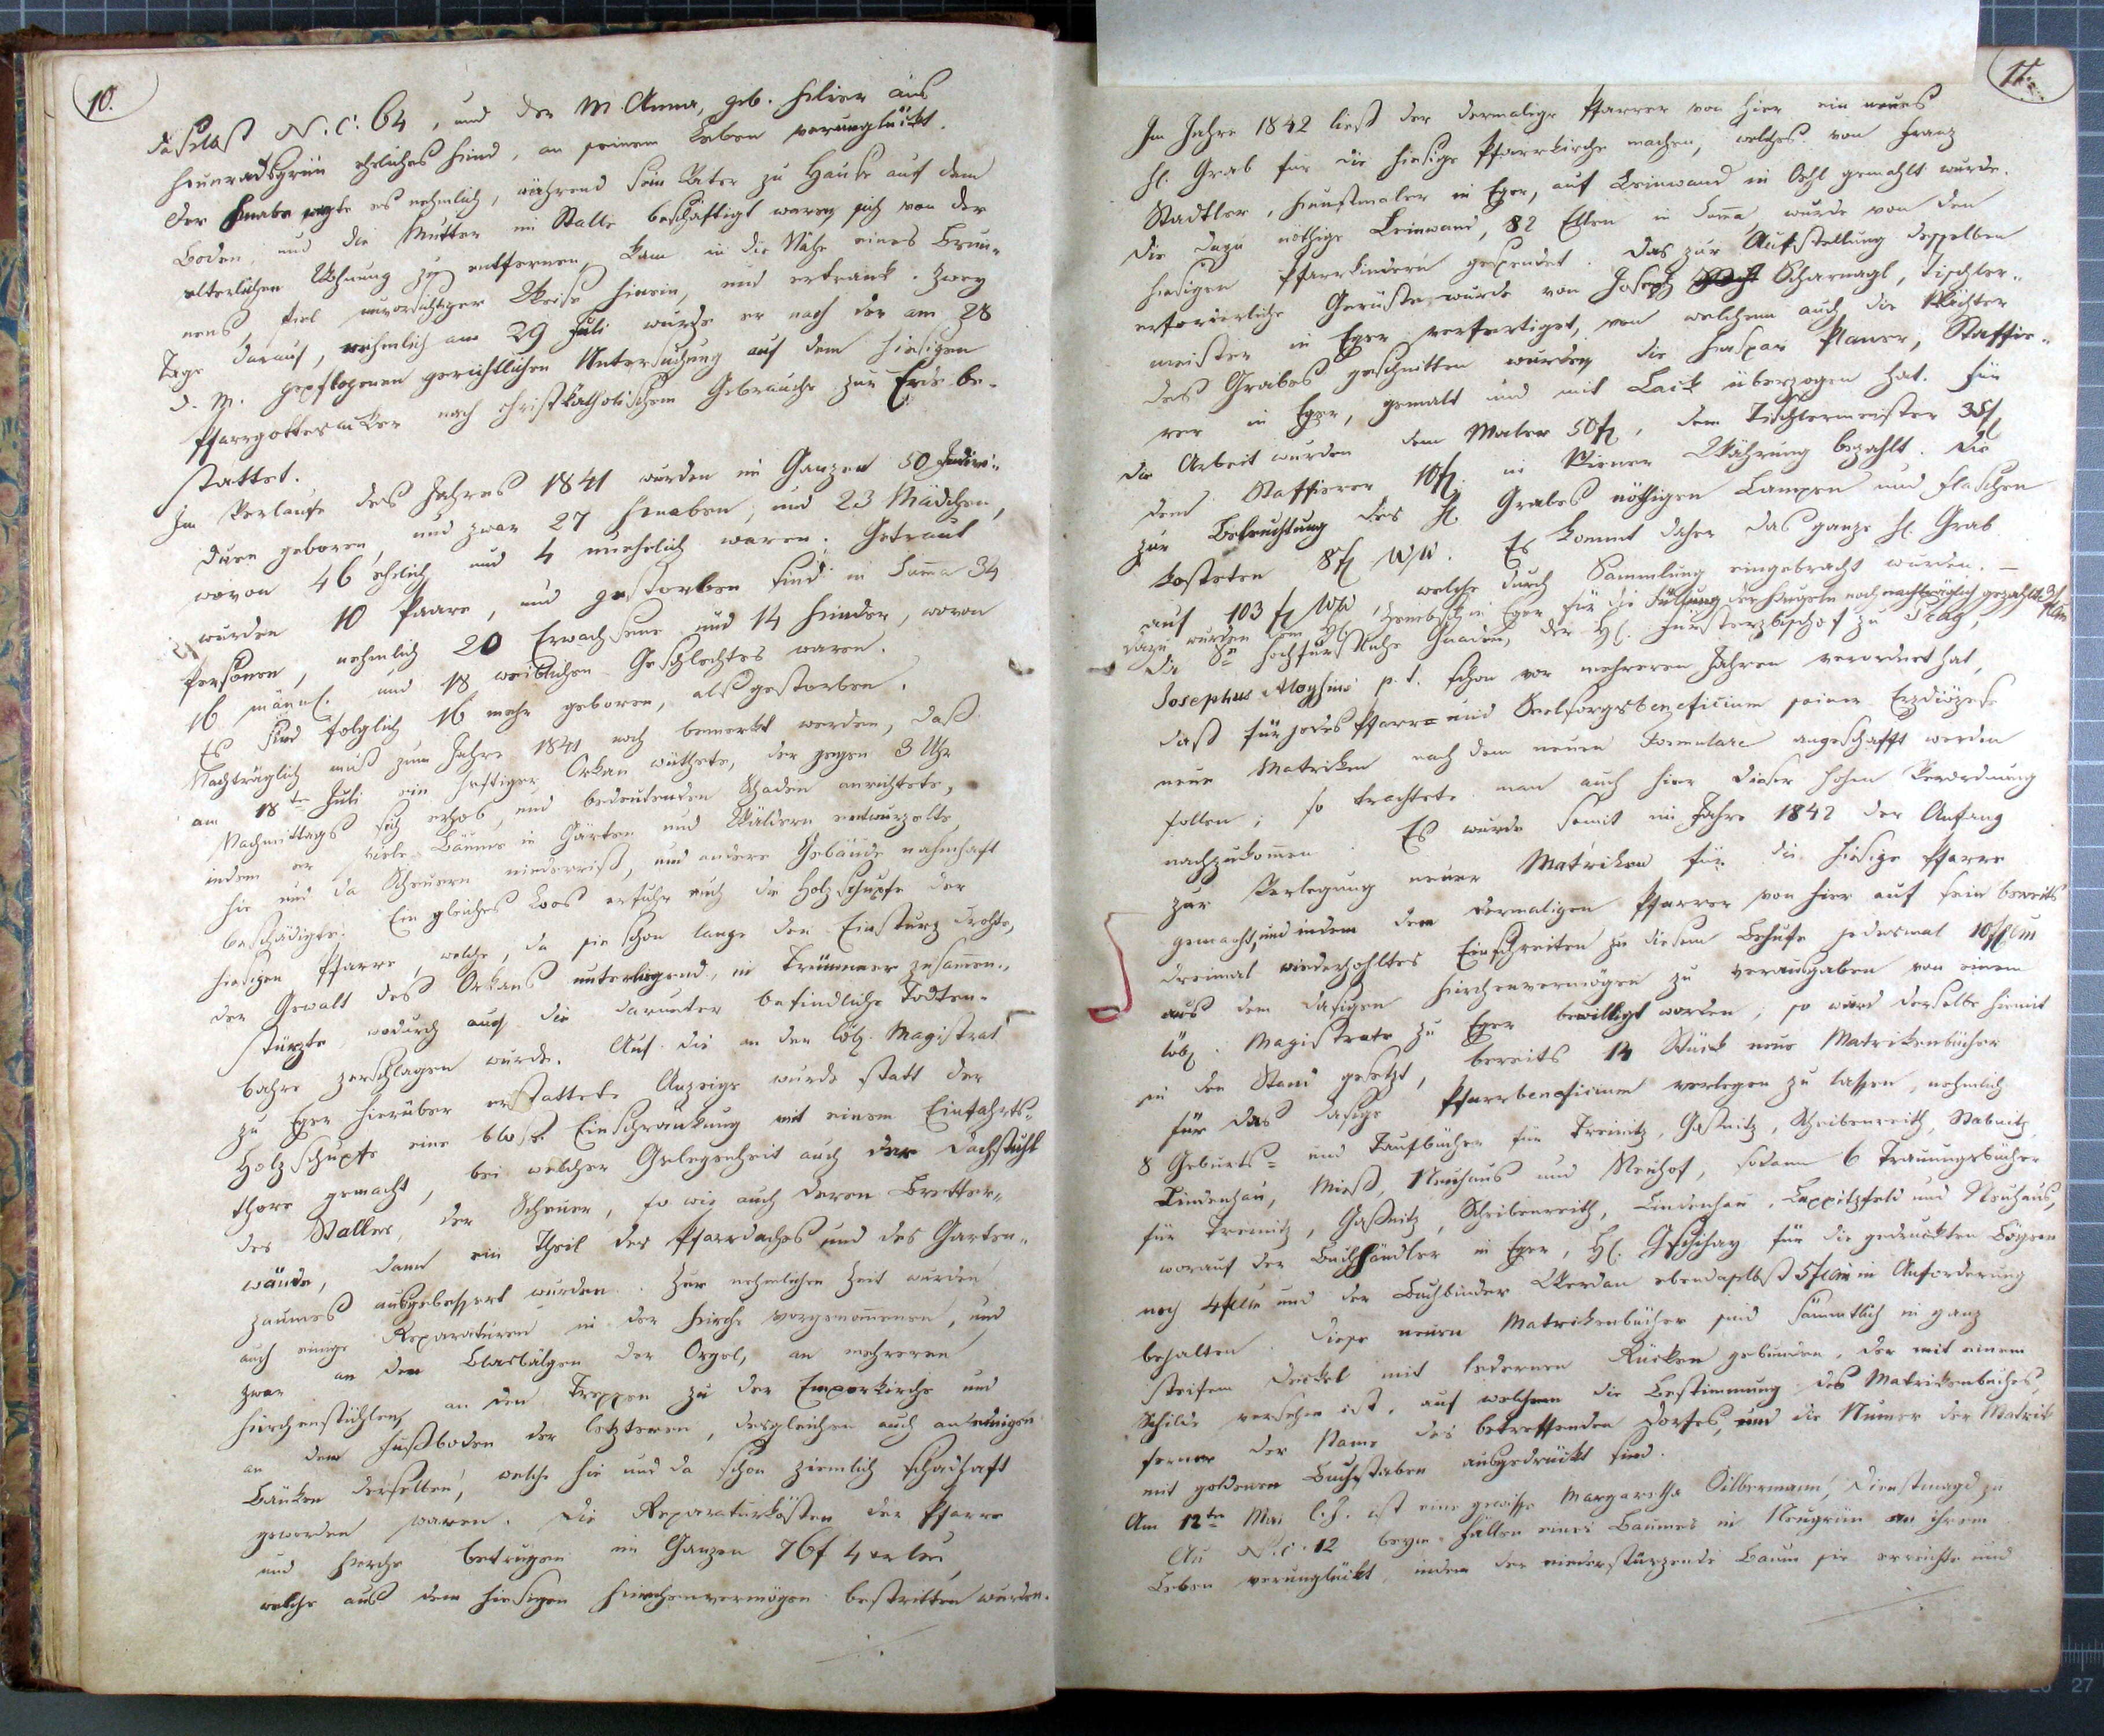 10.
daselbst N.C. 64, und der M. Anna, geb. Hilier aus
Kunradtsgrün eheliches Kind, an seinem Leben verunglückt.
Der Knabe wagte es nehmlich, während sein Vater zu Hause auf dem
Boden, und die Mutter im Stalle beschäftigt waren, sich von der
elterlichen Wohnung zu entfernen, kam in die Nähe eines Brun-
nens, fiel unvorsichtiger Weise hinein, und ertrank. Zwey
Tage darauf, nehmlich am 29 Juli wurde er nach der am 28
d. M. gepflogenen gerichtlichen Untersuchung auf dem hiesigen
Pfarrgottesacker nach christkatholischem Gebrauche zur Erde be-
stattet.
Im Verlaufe des Jahres 1841 wurden im Ganzen 50 Indivi-
duen geboren, und zwar 27 Knaben, und 23 Mädchen,
wovon 46 ehelich, und 4 unehelich waren. Getraut
wurden 10 Paare, und gestorben sind in Suma 34
Personen, nehmlich 20 Erwachsene und 14 Kinder, wovon
16 männl. und 18 weiblichen Geschlechtes waren.
Es sind folglich 16 mehr geboren, als gestorben.
Nachträglich muß zum Jahre 1841 noch bemerkt werden, daß
am 18ten Juli ein heftiger Orkan wüthete, der gegen 3 Uhr
Nachmittags sich erhob, und bedeutenden Schaden anrichtete,
indem er viele Bäume in Gärten und Wäldern entwurzelte,
hie und da Scheuern niederriß, und andere Gebäude nahmhaft
beschädigte. Ein gleiches Loos erfuhr auch die Holzschupfe der
hiesigen Pfarre, welche, da sie schon lange den Einsturz drohte,
der Gewalt des Orkans unterliegend, in Trümmer zusamen-
stürzte, wodurch auch die darunter befindliche Todten-
bahre zerschlagen wurde. Auf die an den löbl. Magistrat
zu Eger hierüber erstattete Anzeige wurde statt der
Holzschupfe eine blose Einschränkung mit einem Einfahrts-
thore gemacht, bei welcher Gelegenheit auch der Dachstuhl
des Stalles, der Scheuer, so wie auch deren Bretter-
wände, dann ein Theil des Pfarrdaches und des Garten-
zaunes ausgebessert wurden. Zur nehmlichen Zeit wurden
auch einige Reparaturen in der Kirche vorgenomenen, und
zwar an den Blasbälgen der Orgel, an mehreren
Kirchenstühlen, an den Treppen zu der Emporkirche und
an dem Fußboden der letzteren, desgleichen auch an einigen
Bänken derselben, welche hie und da schon ziemlich schadhaft
geworden waren. Die Reparaturkösten der Pfarre
und Kirche betrugen im Ganzen 76f 4
welche aus dem hiesigen Kirchenvermögen bestritten wurden.
11.
Im Jahre 1842 ließ der dermalige Pfarrer von hier ein neues
hl. Grab für die hiesige Pfarrkirche machen, welches von Franz
Stadtler, Kunstmaler in Eger, auf Leinwand in Oehl gemahlt wurde.
Die dazu nöthige Leinwand, 82 Ellen in Suma wurde von den
hiesigen Pfarrkindern gespendet. Das zur Aufstellung desselben
erforderliche Gerüste wurde von Joseph Scharnagl, Tischler-
meister in Eger verfertiget, von welchem auch die Wächter
des Grabes geschnitten wurden, die Kaspar Planer, Staffie-
rer in Eger, gemalt und mit Lack überzogen hat. Für
die Arbeit wurden dem Maler 50f, dem Tischlermeister 35f
dem Staffierer 10f in Wiener Währung bezahlt. Die
zur Beleuchtung des hl. Grabes nöthigen Lampen und Flaschen
kosteten 8f WW. Es kommt daher das ganze hl. Grab
auf 103 f WW, welche durch Sammlung eingebracht wurden. –
Dazu wurden dem H. in Eger für die Füllung der Kugeln noch nachträglich gezahlt 3f
Da Se hochfürstliche Gnaden, der H. Fürsterzbischof zu Prag,
Josephus Aloysius p. t. schon vor mehreren Jahren verordnet hat,
daß für jedes Pfarr- und Seelsorgsbeneficium seiner Erzdiözese
neue Matriken nach dem neuen Formulare angeschafft werden
sollen; so trachtete man auch hier dieser hohen Verordnung
nachzukomen. Es wurde somit im Jahre 1842 der Anfang
zur Verlegung neuer Matriken für die hiesige Pfarre
gemacht, und indem dem dermaligen Pfarrer von hier auf sein bereits
dreimal wiederhohltes Einschreiten zu diesem Behufe jedesmal 10f CM
aus dem dasigen Kirchenvermögen zu verausgaben von einem
löbl. Magistrate zu Eger bewilligt worden, so ward derselbe hiemit
in den Stand gesetzt, bereits 14 Stück neue Matrikenbücher
für das dasige Pfarrbeneficium verlegen zu lassen, nehmlich
8 Geburts- und Taufbücher für Treinitz, Gaßnitz, Scheibenreith, Stabnitz,
Lindenhau, Mieß, Neuhaus und Neuhof, sodann 6 Trauungsbücher
für Treinitz, Gaßnitz, Scheibenreith, Lindenhau, Lappitzfeld und Neuhaus,
worauf der Buchhändler in Eger, H. Gschihay für die gedruckten Bögen
noch 4f und der Buchbinder Werdan ebendaselbst 5f CM in Anforderung
behalten. Diese neuen Matrikenbücher sind sämmtlich in ganz
steifem Deickel mit ledernen Rücken gebunden, der mit einem
Schilde versehen ist, auf welchem die Bestimmung des Matrikenbuches,
ferner der Name des betreffenden Dorfes, und die Numer der Matrik
mit goldenen Buchstaben ausgedrückt sind.
Am 12ten Mai l. J. ist eine gewisse Margaretha Silbermann, Dienstmagd zu
Au N.C. 12 beym Fällen eines Baumes in Neugrün an ihrem
Leben verunglückt, indem der niederstürzende Baum sie erreichte und
27